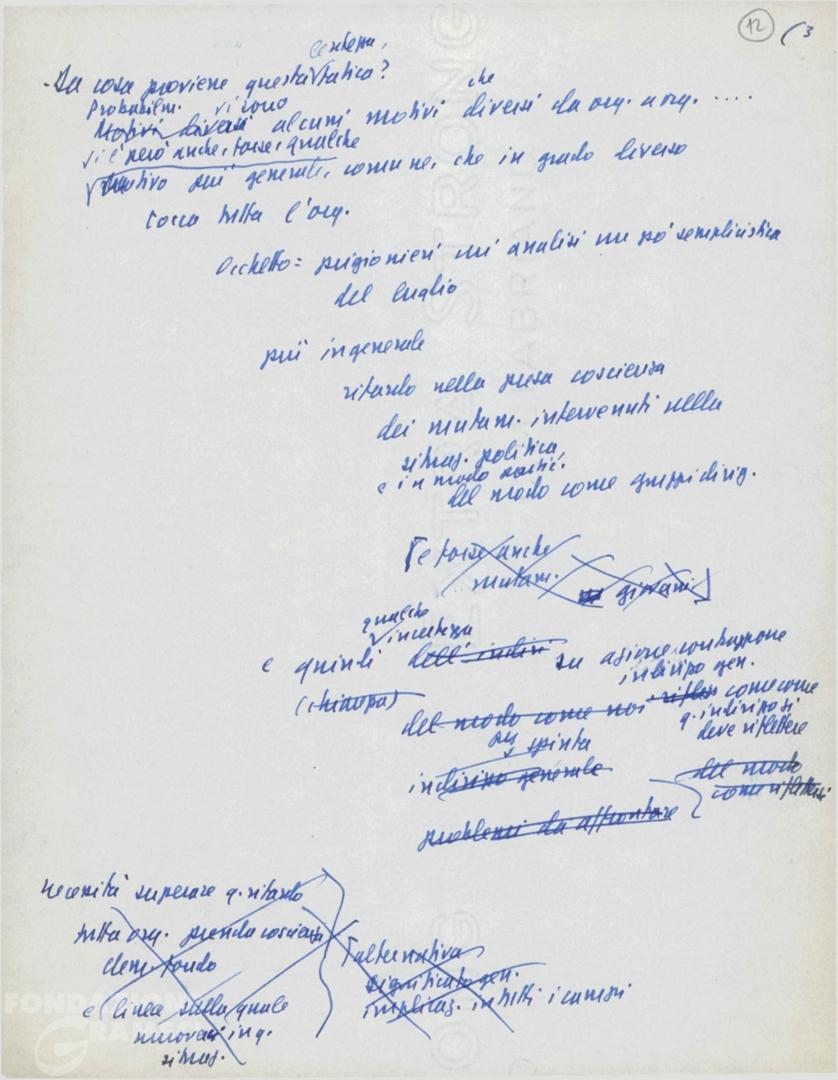 12 (3
lentezza,
- Da cosa proviene questa tatica?
Probabilm. vi sono che
Motivi diversi alcuni motivi diversi da org. a org. ....
vi è però anche, forse, qualche
motivo più generale, comune, che in grado diverso
tocca tutta l'org.
Occhetto = prigionieri un'analisi un po' semplicistica
del luglio
più in generale
ritardo nella presa coscienza
dei mutam. intervenuti nella
situaz. politica,
e in modo partic.
del modo come gruppi dirig.
[e forse anche
mutam. giovani]
qualche
incertezza
e quindi dell'indiri su azione contrapporre
indirizzo gen.
(chiarezza)
del modo come noi come come
q. indirizzo si
deve riflettere
spinta
indirizzo generale del modo
come riflettersi
problemi da affrontare
necessità superare q. ritardo
tutta org. prenda coscienza
fondo
e linea sulla quale
muoversi in q.
situaz.
[alternativa
significato gen.
implicaz. in tutti i campi
FONDAZIONE
GRAMSCI